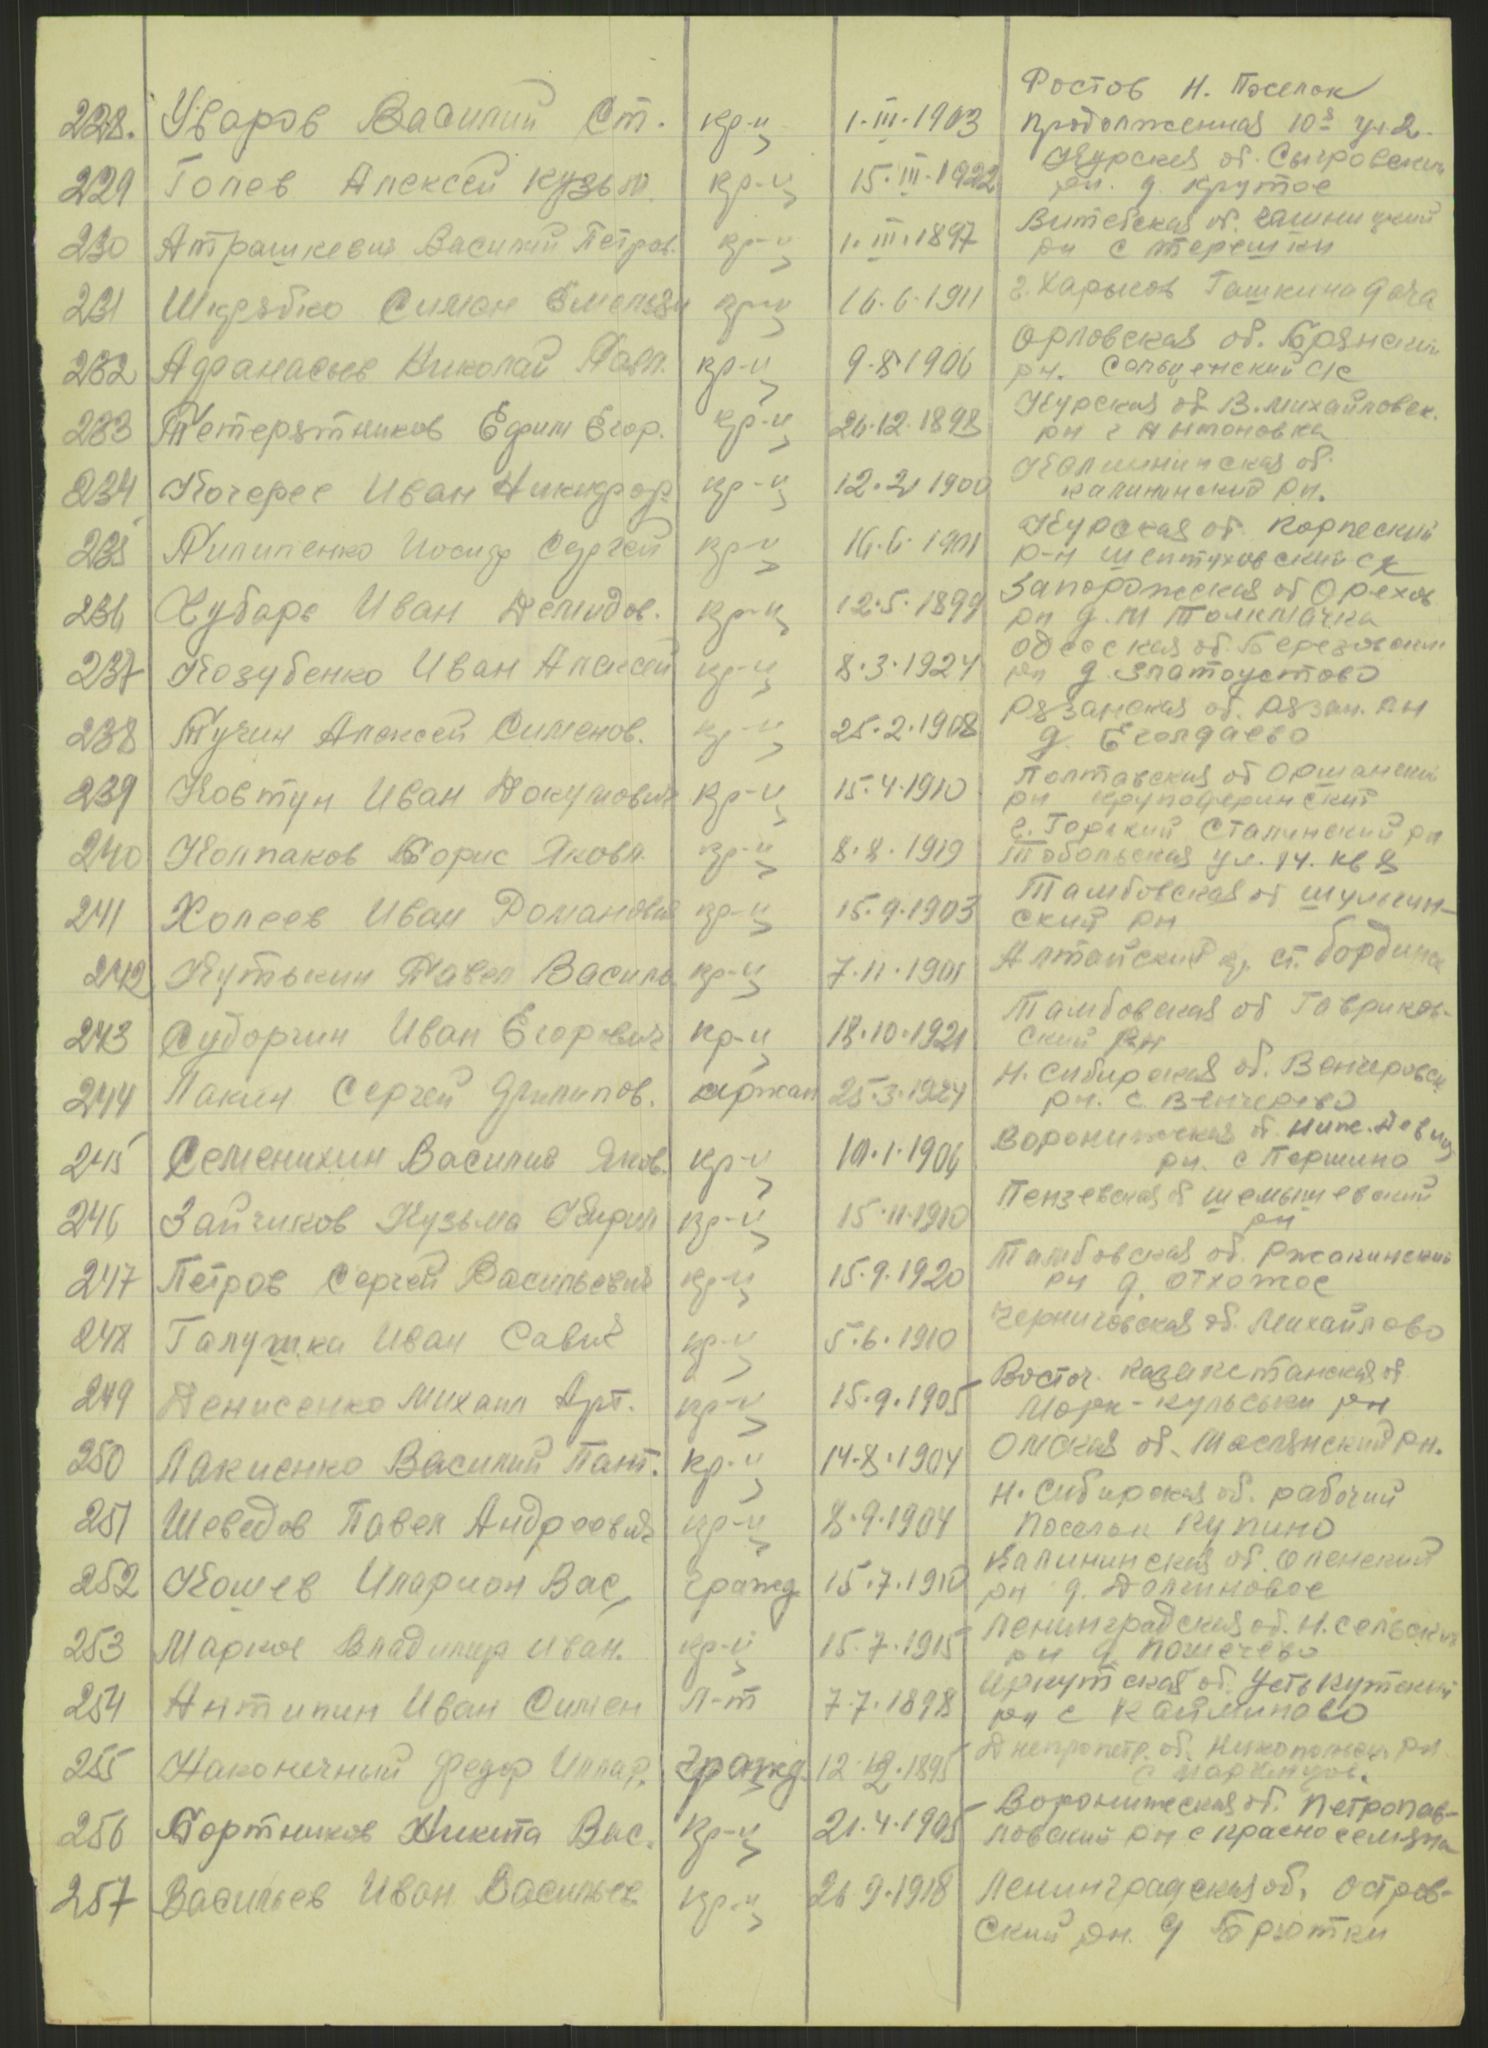 Ростов Н. Поселок
228. Уваров Василий Ст. кр-ц 1.III.1903 продолженная 10я ул 2.
Курская об. Сыгровский
229 Голев Алексей Кузьм. кр-ц 15.III.1922 рн. д. Крутое
Витебская об. Чашницкий
230 Атрашкевич Василий Петров. кр-ц 1.III.1897 рн с Терешки
231 Шкрябко Симон Емельян кр-ц 16.6.1911 г. Харьков Ташкина дача
Орловская об. Брянский
232 Афанасьев Николай Павл. кр-ц 9.8.1906 рн. Сельценский с/с
Курская об В. Михайловск.
233 Тетерятников Ефим Егор. кр-ц 26.12.1898 рн с Антоновка
Калининская об.
234 Кочерес Иван Никифор. кр-ц 12.2.1900 калининский рн.
Курская об. Корпеский
235 Пилипенко Иосиф Сергей кр-ц 16.6.1901 р-н Шептуховский с/с
Запорожская об Орехов
236 Хубарь Иван Демидов. кр-ц 12.5.1899 рн д. М Толкмачка
Одесская об. Березовский
237 Козубенко Иван Алексей кр-ц 8.3.1924 рн д. Златоустово
Рязанская об. Рязан. рн
238 Тучин Алексей Сименов. кр-ц 25.2.1908 д. Еголдаево
Полтавская об Оршанский
239 Ковтун Иван Докумович кр-ц 15.4.1910 рн Круподеринский
г. Горький Сталинский рн
240 Колпаков Борис Яковл. кр-ц 8.8.1919 Тобольская ул. 14. кв 8
Тамбовская об Шулгин-
241 Холеев Иван Романович кр-ц 15.9.1903 ский рн
242 Кутькин Павел Василь кр-ц 7.11.1901 Алтайский кр. ст. бордина
Тамбовская об Гавриков-
243 Суворгин Иван Егорович кр-ц 18.10.1921 ский рн
Н. Сибирская об. Венгеровск
244 Лакин Сергей Филипов. сержан 25.3.1924 рн. с Венгерово
Воронижская об. Ниж. Девиц
245 Семенихин Василий Яков. кр-ц 10.1.1906 рн. с Першино
Пензевская об Шемышевский
246 Зайчиков Кузьма Кирил кр-ц 15.11.1910 рн
Тамбовская об. Ржакинский
247 Петров Сергей Васильевич кр-ц 15.9.1920 рн д. Отхожое
248 Галушка Иван Савич кр-ц 5.6.1910 Черниговская об. Михайлово
Восточ. Казакстанская об
249 Денисенко Михаил Арт. кр-ц 15.9.1905 Марк-кульськи рн
250 Лакиенко Василий Пант. кр-ц 14.8.1904 Омская об. Маслянский рн.
Н. Сибирская об. рабочий
251 Шеведов Павел Андреевич кр-ц 8.9.1904 поселок Купино
Калининская об. Оленский
252 Кошев Иларион Вас. гражд 15.7.1910 рн д. Долгиновое
Ленинградская об. Н. сельский
253 Маркое Владимир Иван. кр-ц 15.7.1915 рн д. Пошечево
Иркутская об. Усть кутский
254 Антипин Иван Симен л-т 7.7.1898 рн с Каймипово
Днепропетр. об. Никопольск рн
255 Наконечный Федор Иллар. гражд. 12.12.1895
Воронижская об. Петропав-
256 Бортников Никита Вас. кр-ц 21.4.1905 ловский рн с Красноселовка
257 Васильев Иван Васильев кр-ц 26 9.1918 Ленинградская об, остров-
ский рн. д Брютки